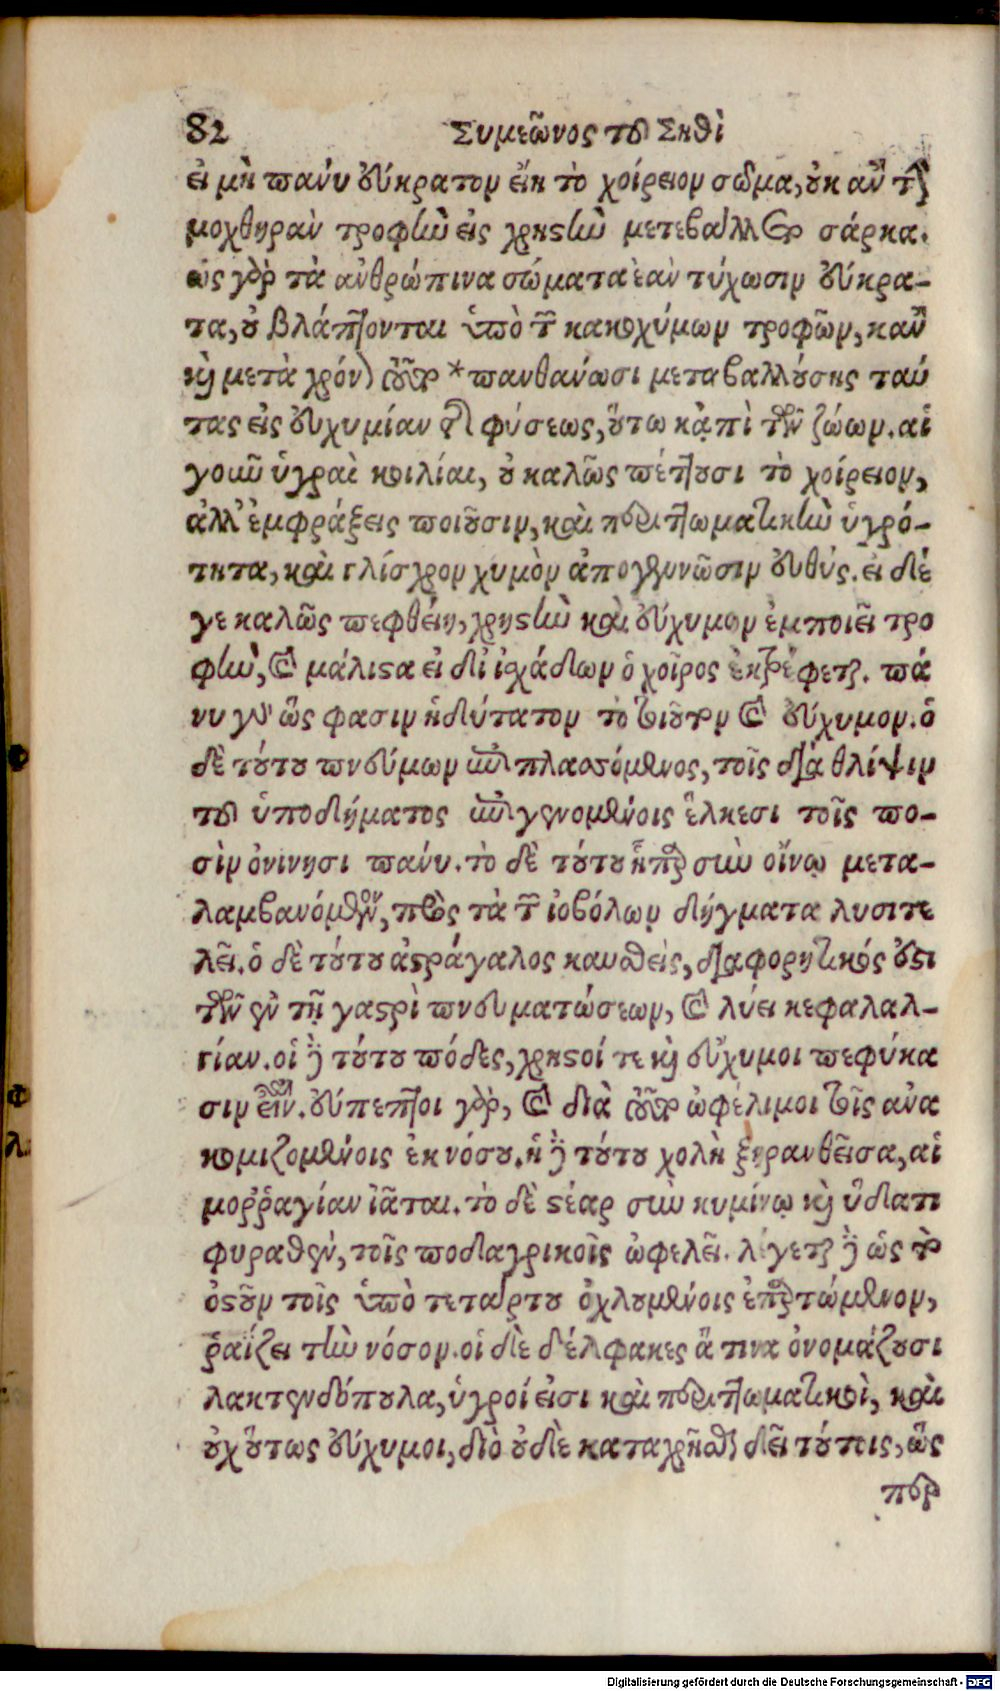 82 Συμεῶνος τοῦ Σηθὶ
εἰ μὴ πάνυ εὔκρατον εἴη τὸ χοίρειον σῶμα, οὐκ ἂν τὴν
μοχθηρὰν τροφὴν εἰς χρηστὴν μετέβαλλεν σάρκα.
ὡς γὰρ τὰ ἀνθρώπινα σώματα ἐὰν τύχωσιν εὔκρα-
τα, οὐ βλάπτονται ὑπὸ τῶν κακοχύμων τροφῶν, κἂν
καὶ μετὰ χρόνον τοῦτο *πανθανώσι μεταβαλλούσης ταύ
τας εἰς εὐχυμίαν τῆς φύσεως, οὕτω κᾀπὶ τῶν ζώων. αἱ
γοῦν ὑγραὶ κοιλίαι, οὐ καλῶς πέττουσι τὸ χοίρειον,
ἀλλ' ἐμφράξεις ποιοῦσιν, καὶ περιττωματικὴν ὑγρό-
τητα, καὶ γλίσχρον χυμὸν ἀπογεννῶσιν εὐθύς. εἰ δέ
γε καλῶς πεφθείη, χρηστὴν καὶ εὔχυμον ἐμποιεῖ τρο
φὴν, καὶ μάλιστα εἰ δι' ἰσχάδων ὁ χοῖρος ἐκτρέφεται. πά
νυ γὰρ ὥς φασιν ἡδύτατον τὸ τοιοῦτον καὶ εὔχυμον. ὁ
δὲ τούτου πνεύμων ἀναπλασσόμενος, τοῖς διὰ θλίψιν
τοῦ ὑποδήματος ἀναγενομένοις ἕλκεσι τοῖς πο-
σὶν ὀνίνησι πάνυ. τὸ δὲ τούτου ἧπαρ σὺν οἴνῳ μετα-
λαμβανόμενον, πρὸς τὰ τῶν ἰοβόλων δήγματα λυσιτε
λεῖ. ὁ δὲ τούτου ἀστράγαλος καυθεὶς, διαφορητικός ἐστι
τῶν ἐν τῇ γαστρὶ πνευματώσεων, καὶ λύει κεφαλαλ-
γίαν. οἱ δὲ τούτου πόδες, χρηστοί τε καὶ εὔχυμοι πεφύκα
σιν εἶναι. εὔπεπτοι γὰρ, καὶ διὰ τοῦτο ὠφέλιμοι τοῖς ἀνα
κομιζομένοις ἐκ νόσου. ἡ δὲ τούτου χολὴ ξηρανθεῖσα, αἱ
μορῤαγίαν ἰᾶται. τὸ δὲ στέαρ σὺν κυμίνῳ καὶ ὕδατι
φυραθὲν, τοῖς ποδαγρικοῖς ὠφελεῖ. λέγεται δὲ ὡς τὸ
ὀστοῦν τοῖς ὑπὸ τεταρτου ὀχλουμένοις ἐπαρτώμενον,
ῥαΐζει τὴν νόσον. οἱ δὲ δέλφακες ἅ τινα ὀνομάζουσι
λακτενδόπουλα, ὑγροί εἰσι καὶ περιττωματικοὶ, καὶ
οὐχ οὕτως εὔχυμοι, διὸ οὐδὲ καταχρῆσθαι δεῖ τούτοις, ὥς
περ
Digitalisierung gefördert durch die Deutsche Forschungsgemeinschaft - DFG